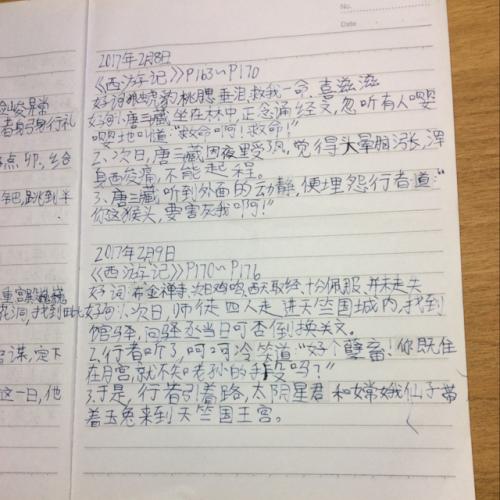 No.
Date
2017年2月8日
《西游记》P163～P170
好词: 虎豹 桃腮 垂泪 救我一命 喜滋滋
好句: 唐三藏坐在林中正念诵经文,忽听有人嘤
嘤地叫道:“救命啊!救命!”
2、次日,唐三藏因夜里受了风,觉得头晕脑涨,浑
身酸痛,不能起程。
3、唐三藏听到外面的动静,便埋怨行者道:“
你这猴头,要害死我啊!”
2017年2月9日
《西游记》P170～P176
好词 布金禅寺 次日鸡鸣 西天取经 十分佩服 并未走失
好句1、次日,师徒四人走进天竺国城内,找到
馆驿,问驿丞当日可否倒换关文。
2、行者听了,呵呵冷笑道:“好个孽畜!你既住
在月宫,就不知老孙的手段吗?”
3、于是,行者引着路,太阴星君和嫦娥仙子带
着玉兔来到天竺国王宫。
者身后躬身行礼
吧,跳到半
谋,定下
这一日,他